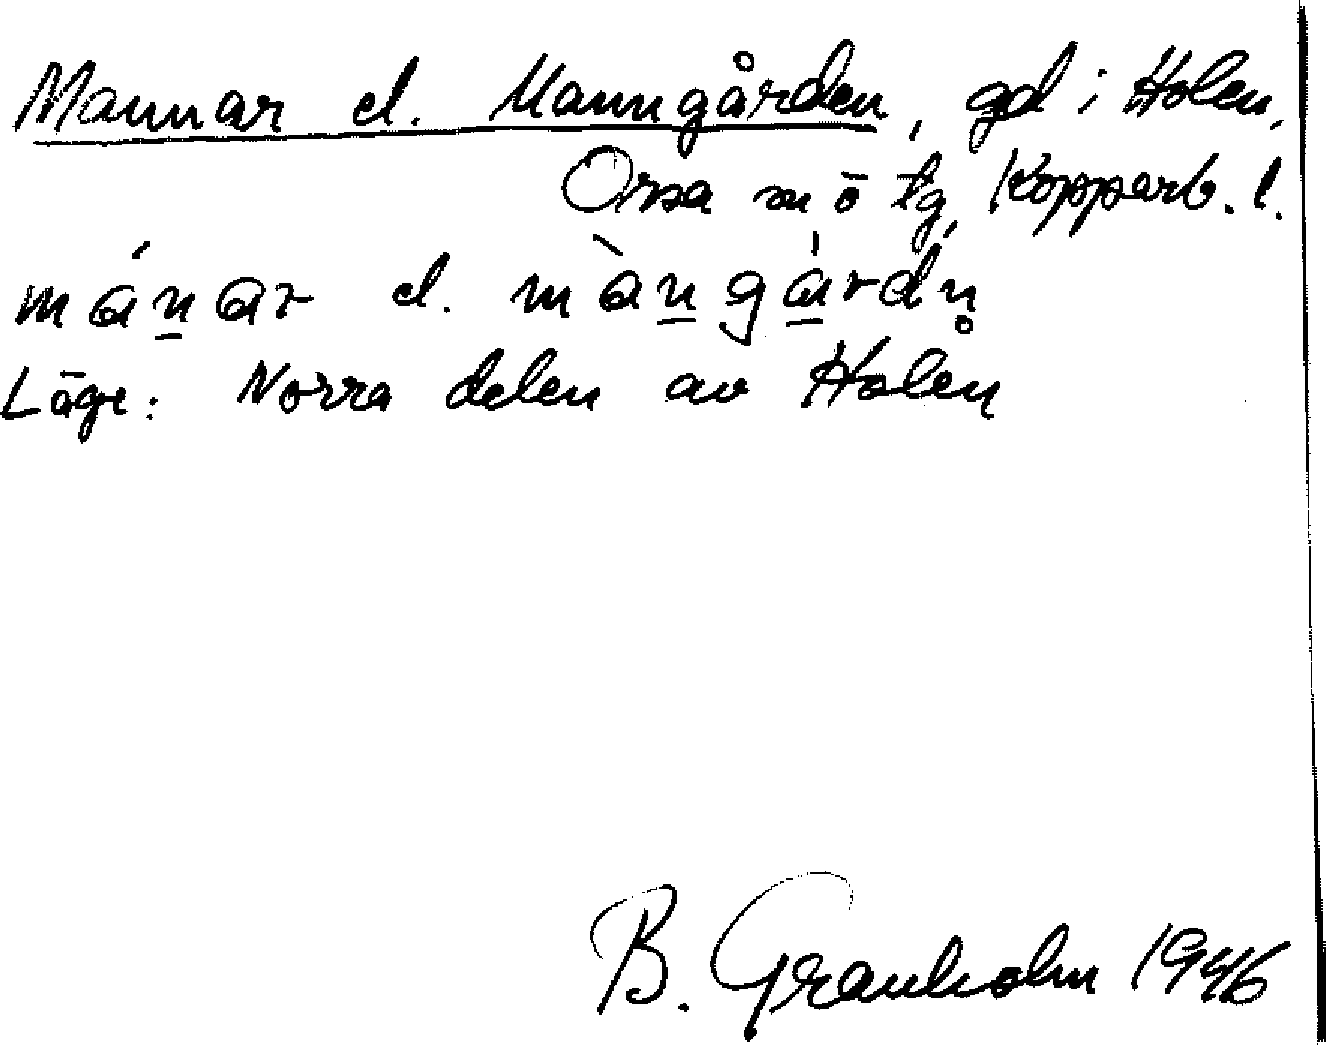 Mannar el. Manngården, gd i Holen,
Orsa sn ö tg, Kopparb. l.
mánar el. màngárdn̥
Läge: Norra delen av Holen
B. Granholm 1946